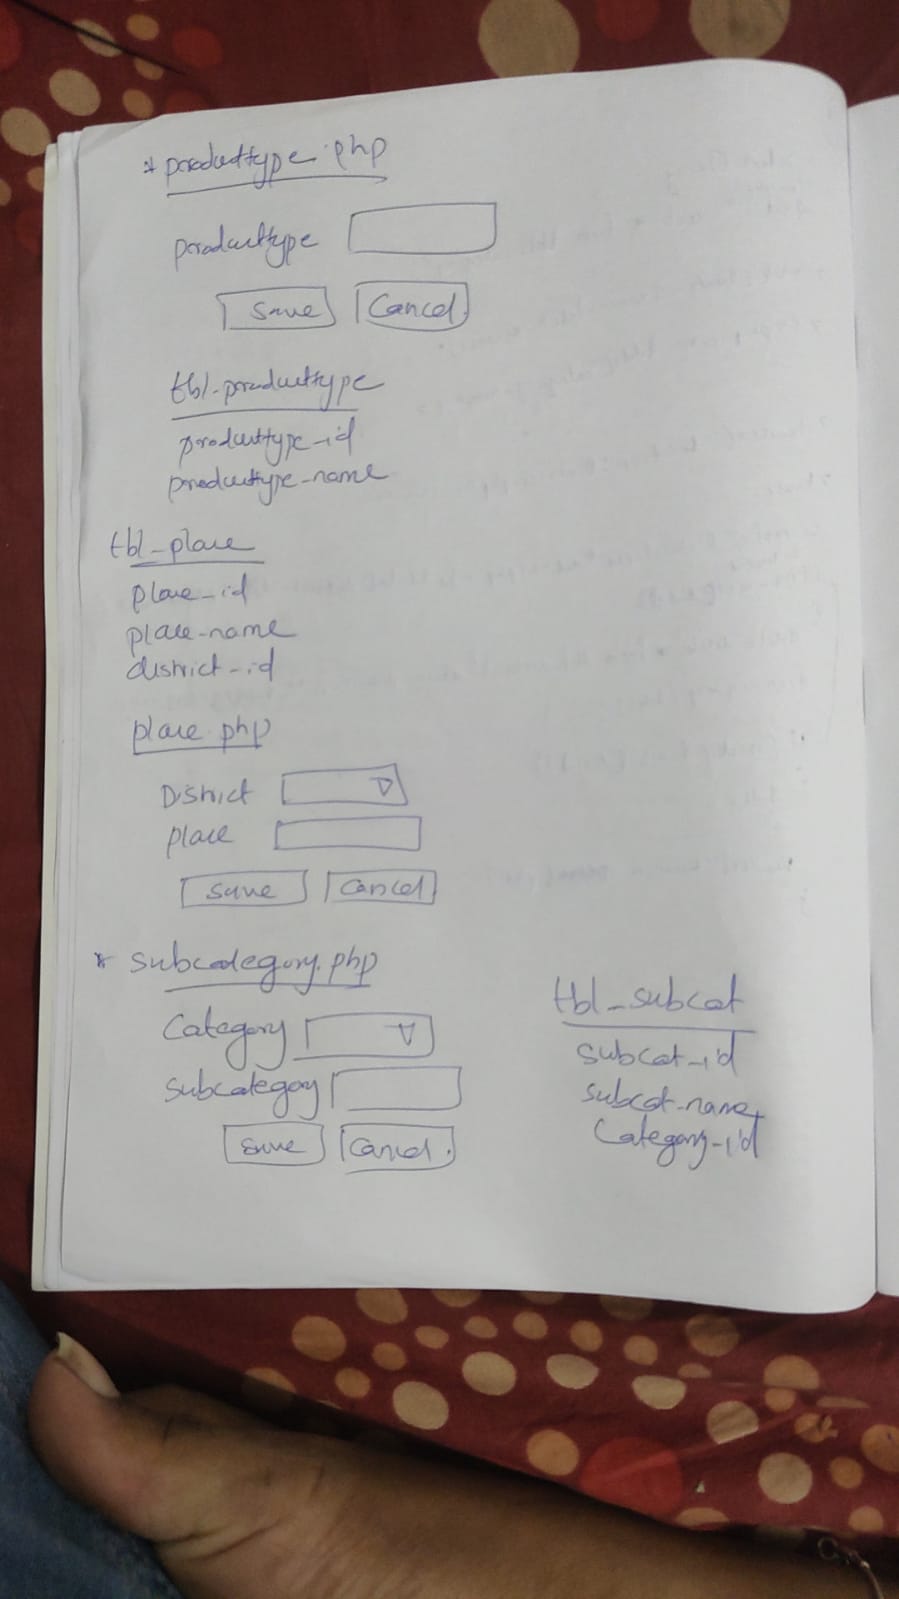 * producttype.php
producttype
Save Cancel
tbl_producttype
producttype_id
producttype_name
tbl_place
place_id
place_name
district_id
place.php
District
place
Save Cancel
* subcategory.php
Category
subcategory
Save Cancel
tbl_subcat
subcat_id
subcat_name
Category_id